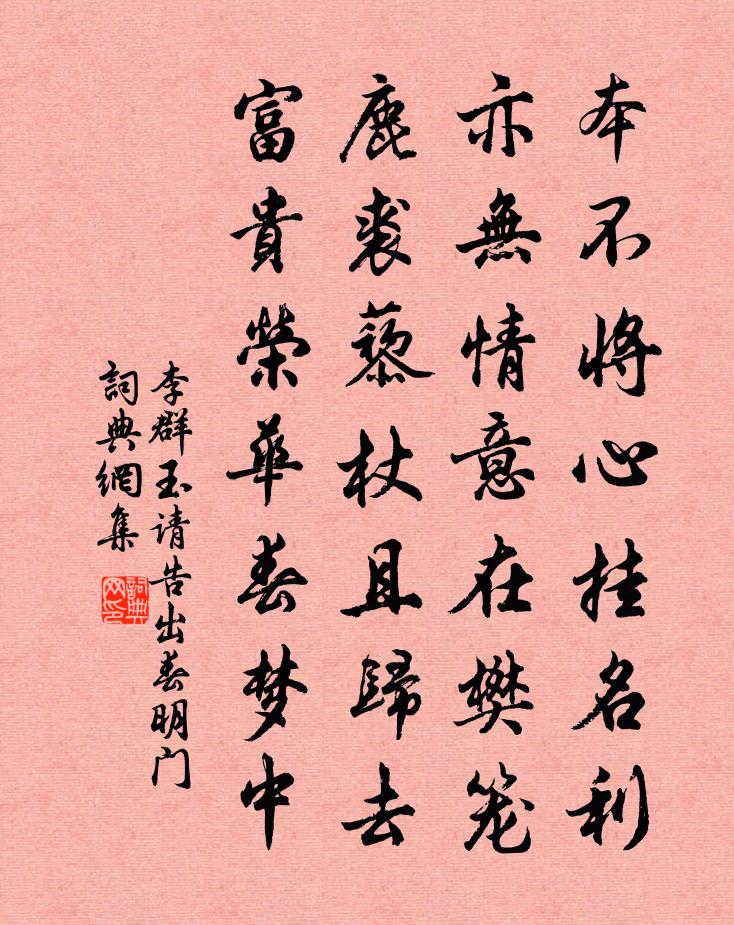 本不將心挂名利
亦無情意在樊笼
鹿裘藜杖且歸去
富貴榮華春梦中
李群玉请告出春明门
詞典網集
詞典网印